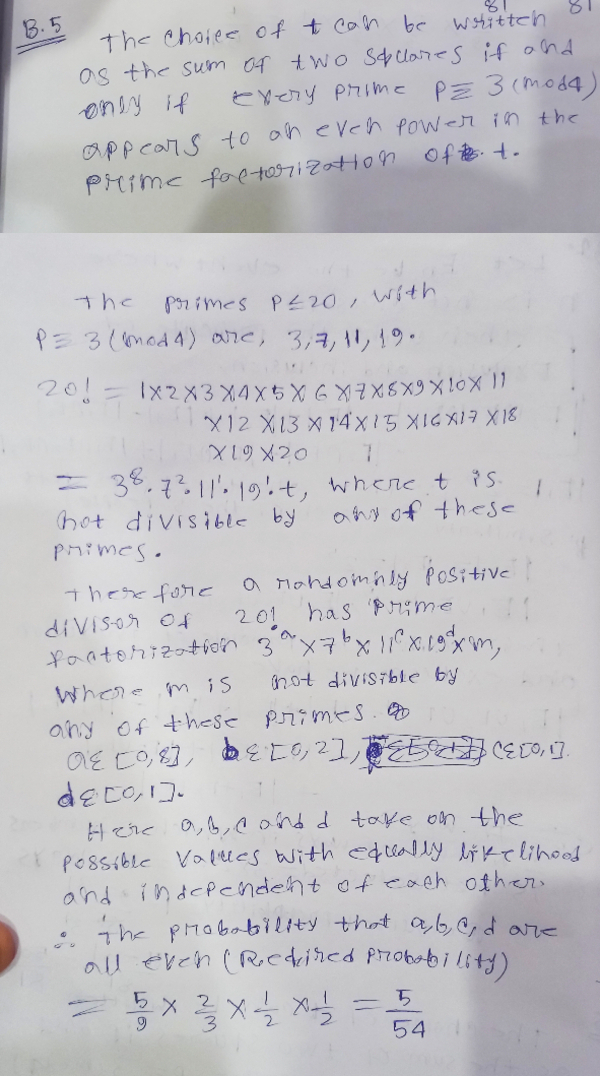 81 81
B.5
The choice of t can be written
as the sum of two squares if and
only if every prime P≡ 3 (mod4)
appears to an even power in the
prime factorization of t.
The primes P≤20, with
P≡ 3 (mod4) are, 3,7,11,19.
20! = 1×2×3×4×5×6×7×8×9×10×11
×12×13×14×15×16×17×18
×19×20
= 3⁸·7²·11¹·19¹·t, where t is
not divisible by any of these
primes.
Therefore a randomnly positive
divisor of 20! has prime
factorization 3ᵃ×7ᵇ×11ᶜ×19ᵈ×m,
where m is not divisible by
any of these primes.
aε[0,8], bε[0,2], cε[0,1].
dε[0,1].
Here a,b,c and d take on the
possible values with equally likelihood
and independent of each other.
∴ The probability that a,b,c,d are
all even (Required probability)
= 5/9 × 2/3 × 1/2 × 1/2 = 5/54